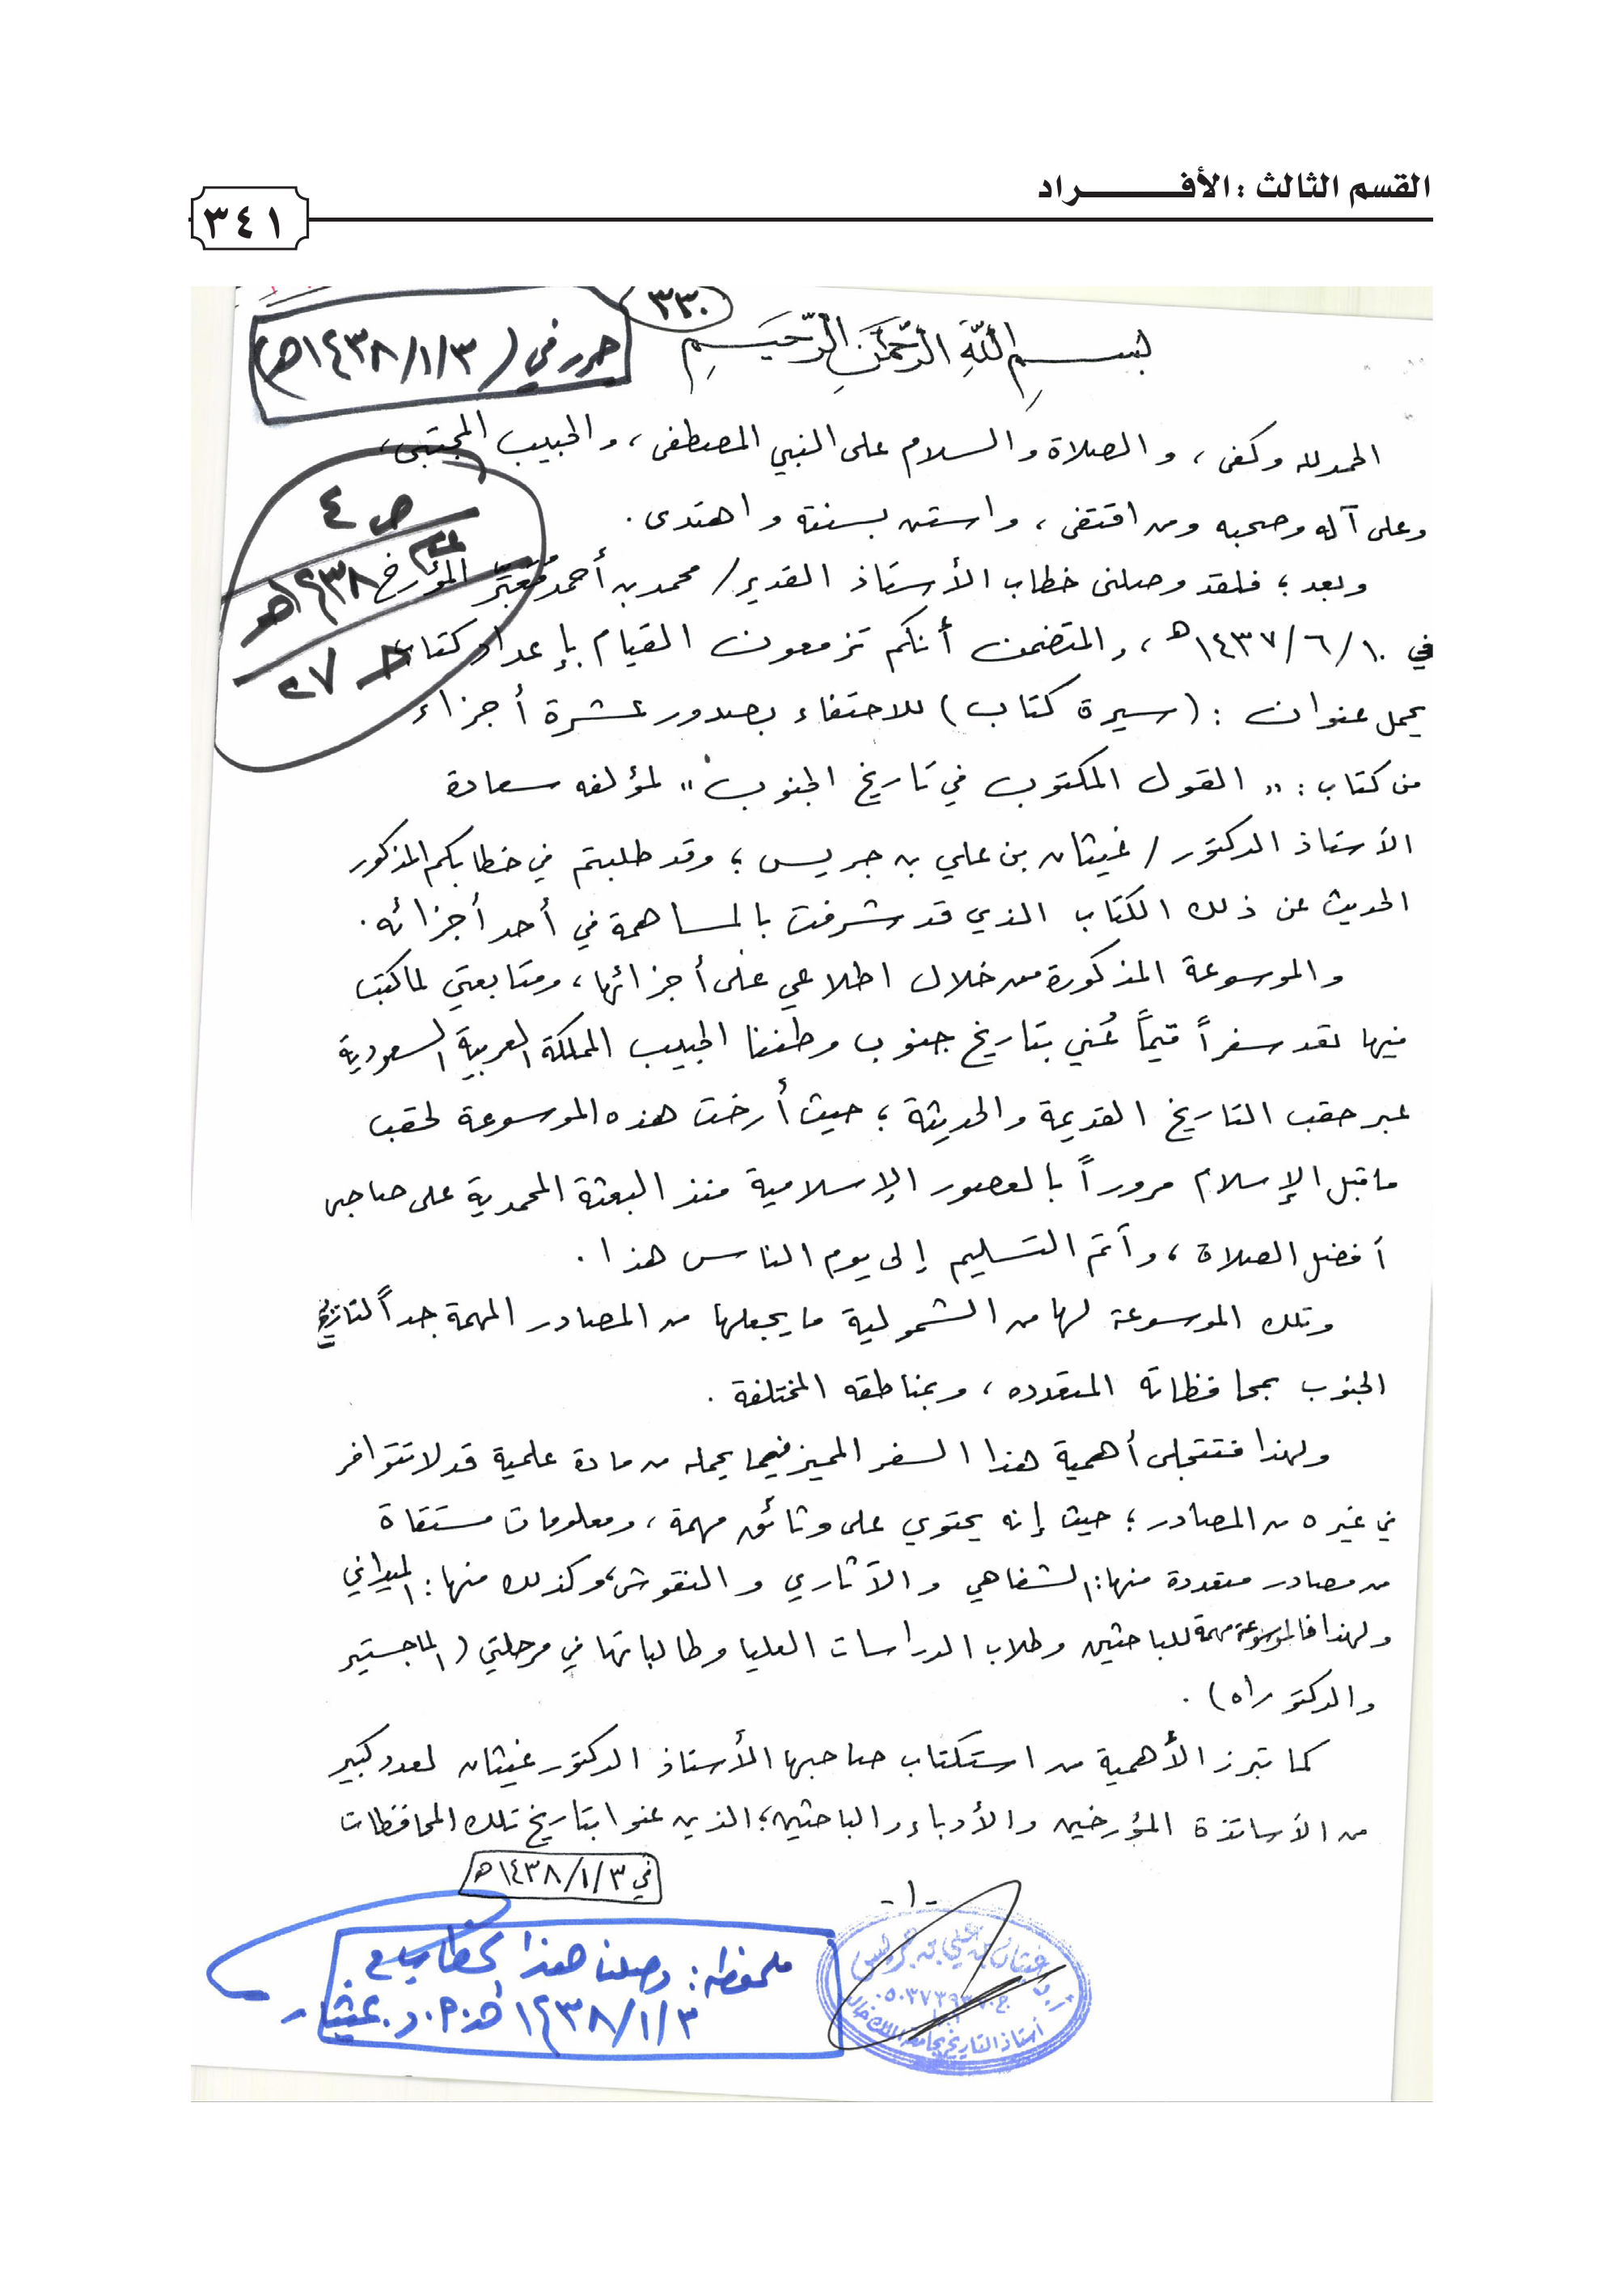 القسم الثالث : الأفـــــــراد
٣٤١
٣٣٠
حرر في (١٤٣٨/١/٣هـ)
بسم الله الرحمن الرحيم
الحمد لله وكفى ، والصلاة والسلام على النبي المصطفى ، والحبيب المجتبى ،
وعلى آله وصحبه ومن اقتفى ، واستن بسنته واهتدى .
ص ٤
١٤٣٨هـ
٢٧
وبعد ؛ فلقد وصلني خطاب الأستاذ القدير / محمد بن أحمد مُعَبِّر المؤرخ
في ١٤٣٧/٦/١٠هـ ، والمتضمن أنكم تزمعون القيام بإعداد كتاب
يحمل عنوان : (سيرة كتاب) للاحتفاء بصدور عشرة أجزاء
من كتاب : " القول المكتوب في تاريخ الجنوب " لمؤلفه سعادة
الأستاذ الدكتور / غيثان بن علي بن جريس ؛ وقد طلبتم في خطابكم المذكور
الحديث عن ذلك الكتاب الذي قد شرفت بالمساهمة في أحد أجزائه .
والموسوعة المذكورة من خلال اطلاعي على أجزائها ، ومتابعتي لما كتب
فيها تعد سفراً قيماً عُني بتاريخ جنوب وطننا الحبيب المملكة العربية السعودية
عبر حقب التاريخ القديمة والحديثة ؛ حيث أرخت هذه الموسوعة لحقب
ما قبل الإسلام مروراً بالعصور الإسلامية منذ البعثة المحمدية على صاحبها
أفضل الصلاة ، وأتم التسليم إلى يوم الناس هذا .
وتلك الموسوعة لها من الشمولية ما يجعلها من المصادر المهمة جداً لتاريخ
الجنوب بمحافظاته المتعدده ، وبمناطقه المختلفة .
ولهذا فتتجلى أهمية هذا السفر المميز فيما يحمله من مادة علمية قد لا تتوافر
في غيره من المصادر ؛ حيث إنه يحتوي على وثائق مهمة ، ومعلومات مستقاة
من مصادر متعددة منها : الشفاهي والآثاري والنقوش ، وكذلك منها : الميداني
ولهذا فالموسوعة مهمة للباحثين وطلاب الدراسات العليا وطالباتها في مرحلتي (الماجستير
والدكتوراه) .
كما تبرز الأهمية من استكتاب صاحبها الأستاذ الدكتور غيثان لعدد كبير
من الأساتذة المؤرخين والأدباء والباحثين ؛ الذين عنوا بتاريخ تلك المحافظات
في ١٤٣٨/١/٣هـ
-١-
غيثان بن علي بن جريس
أستاذ التاريخ بجامعة الملك خالد
ملحوظة : وصلنا هذا الخطاب
١٤٣٨/١/٣هـ